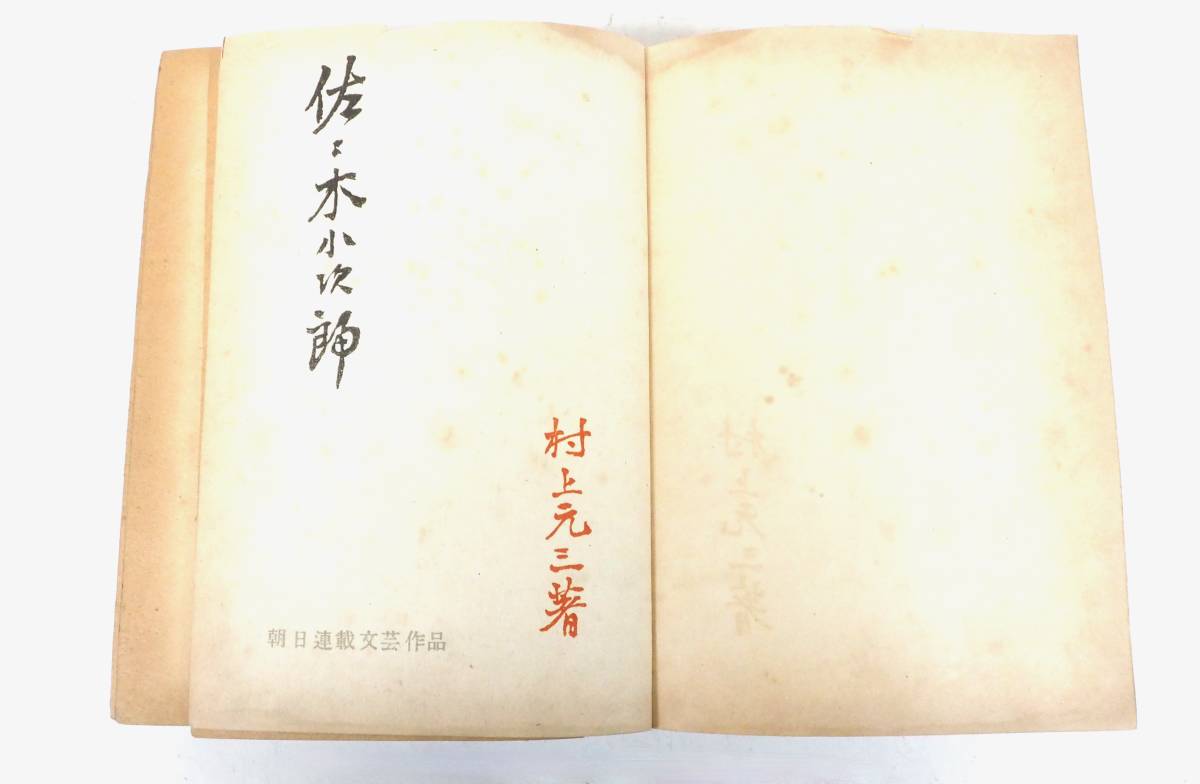 佐々木小次郎
村上元三著
朝日連載文芸作品